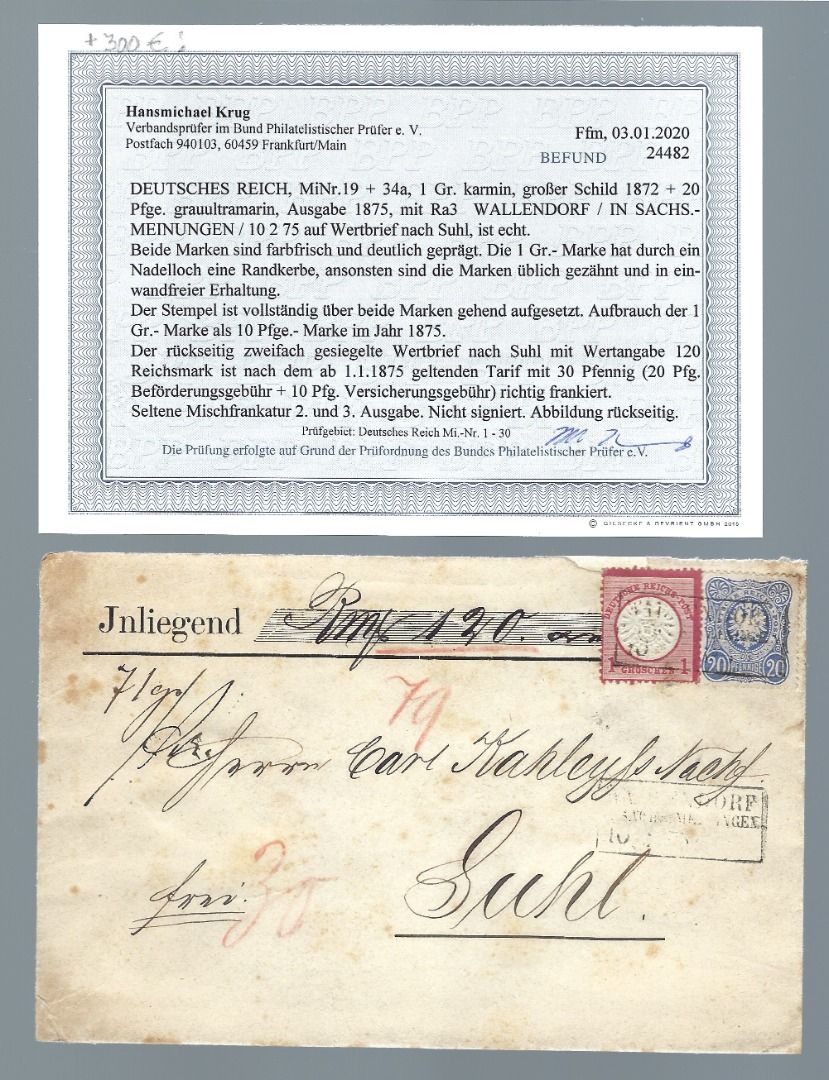 + 300 €
Hansmichael Krug
Verbandsprüfer im Bund Philatelistischer Prüfer e. V.
Postfach 940103, 60459 Frankfurt/Main
Ffm, 03.01.2020
BEFUND 24482
DEUTSCHES REICH, MiNr.19 + 34a, 1 Gr. karmin, großer Schild 1872 + 20
Pfge. grauultramarin, Ausgabe 1875, mit Ra3 WALLENDORF / IN SACHS.-
MEINUNGEN / 10 2 75 auf Wertbrief nach Suhl, ist echt.
Beide Marken sind farbfrisch und deutlich geprägt. Die 1 Gr.- Marke hat durch ein
Nadelloch eine Randkerbe, ansonsten sind die Marken üblich gezähnt und in ein-
wandfreier Erhaltung.
Der Stempel ist vollständig über beide Marken gehend aufgesetzt. Aufbrauch der 1
Gr.- Marke als 10 Pfge.- Marke im Jahr 1875.
Der rückseitig zweifach gesiegelte Wertbrief nach Suhl mit Wertangabe 120
Reichsmark ist nach dem ab 1.1.1875 geltenden Tarif mit 30 Pfennig (20 Pfg.
Beförderungsgebühr + 10 Pfg. Versicherungsgebühr) richtig frankiert.
Seltene Mischfrankatur 2. und 3. Ausgabe. Nicht signiert. Abbildung rückseitig.
Prüfgebiet: Deutsches Reich Mi.-Nr. 1 - 30
Die Prüfung erfolgte auf Grund der Prüfordnung des Bundes Philatelistischer Prüfer e.V.
© GIESECKE & DEVRIENT GMBH 2010
Jnliegend Rmk 120.
DEUTSCHE REICHS-POST
1 GROSCHEN 1
20 PFENNIGE 20
79
Herrn Carl Kahleyss Nachf.
DORF
10
frei. 30
Suhl.